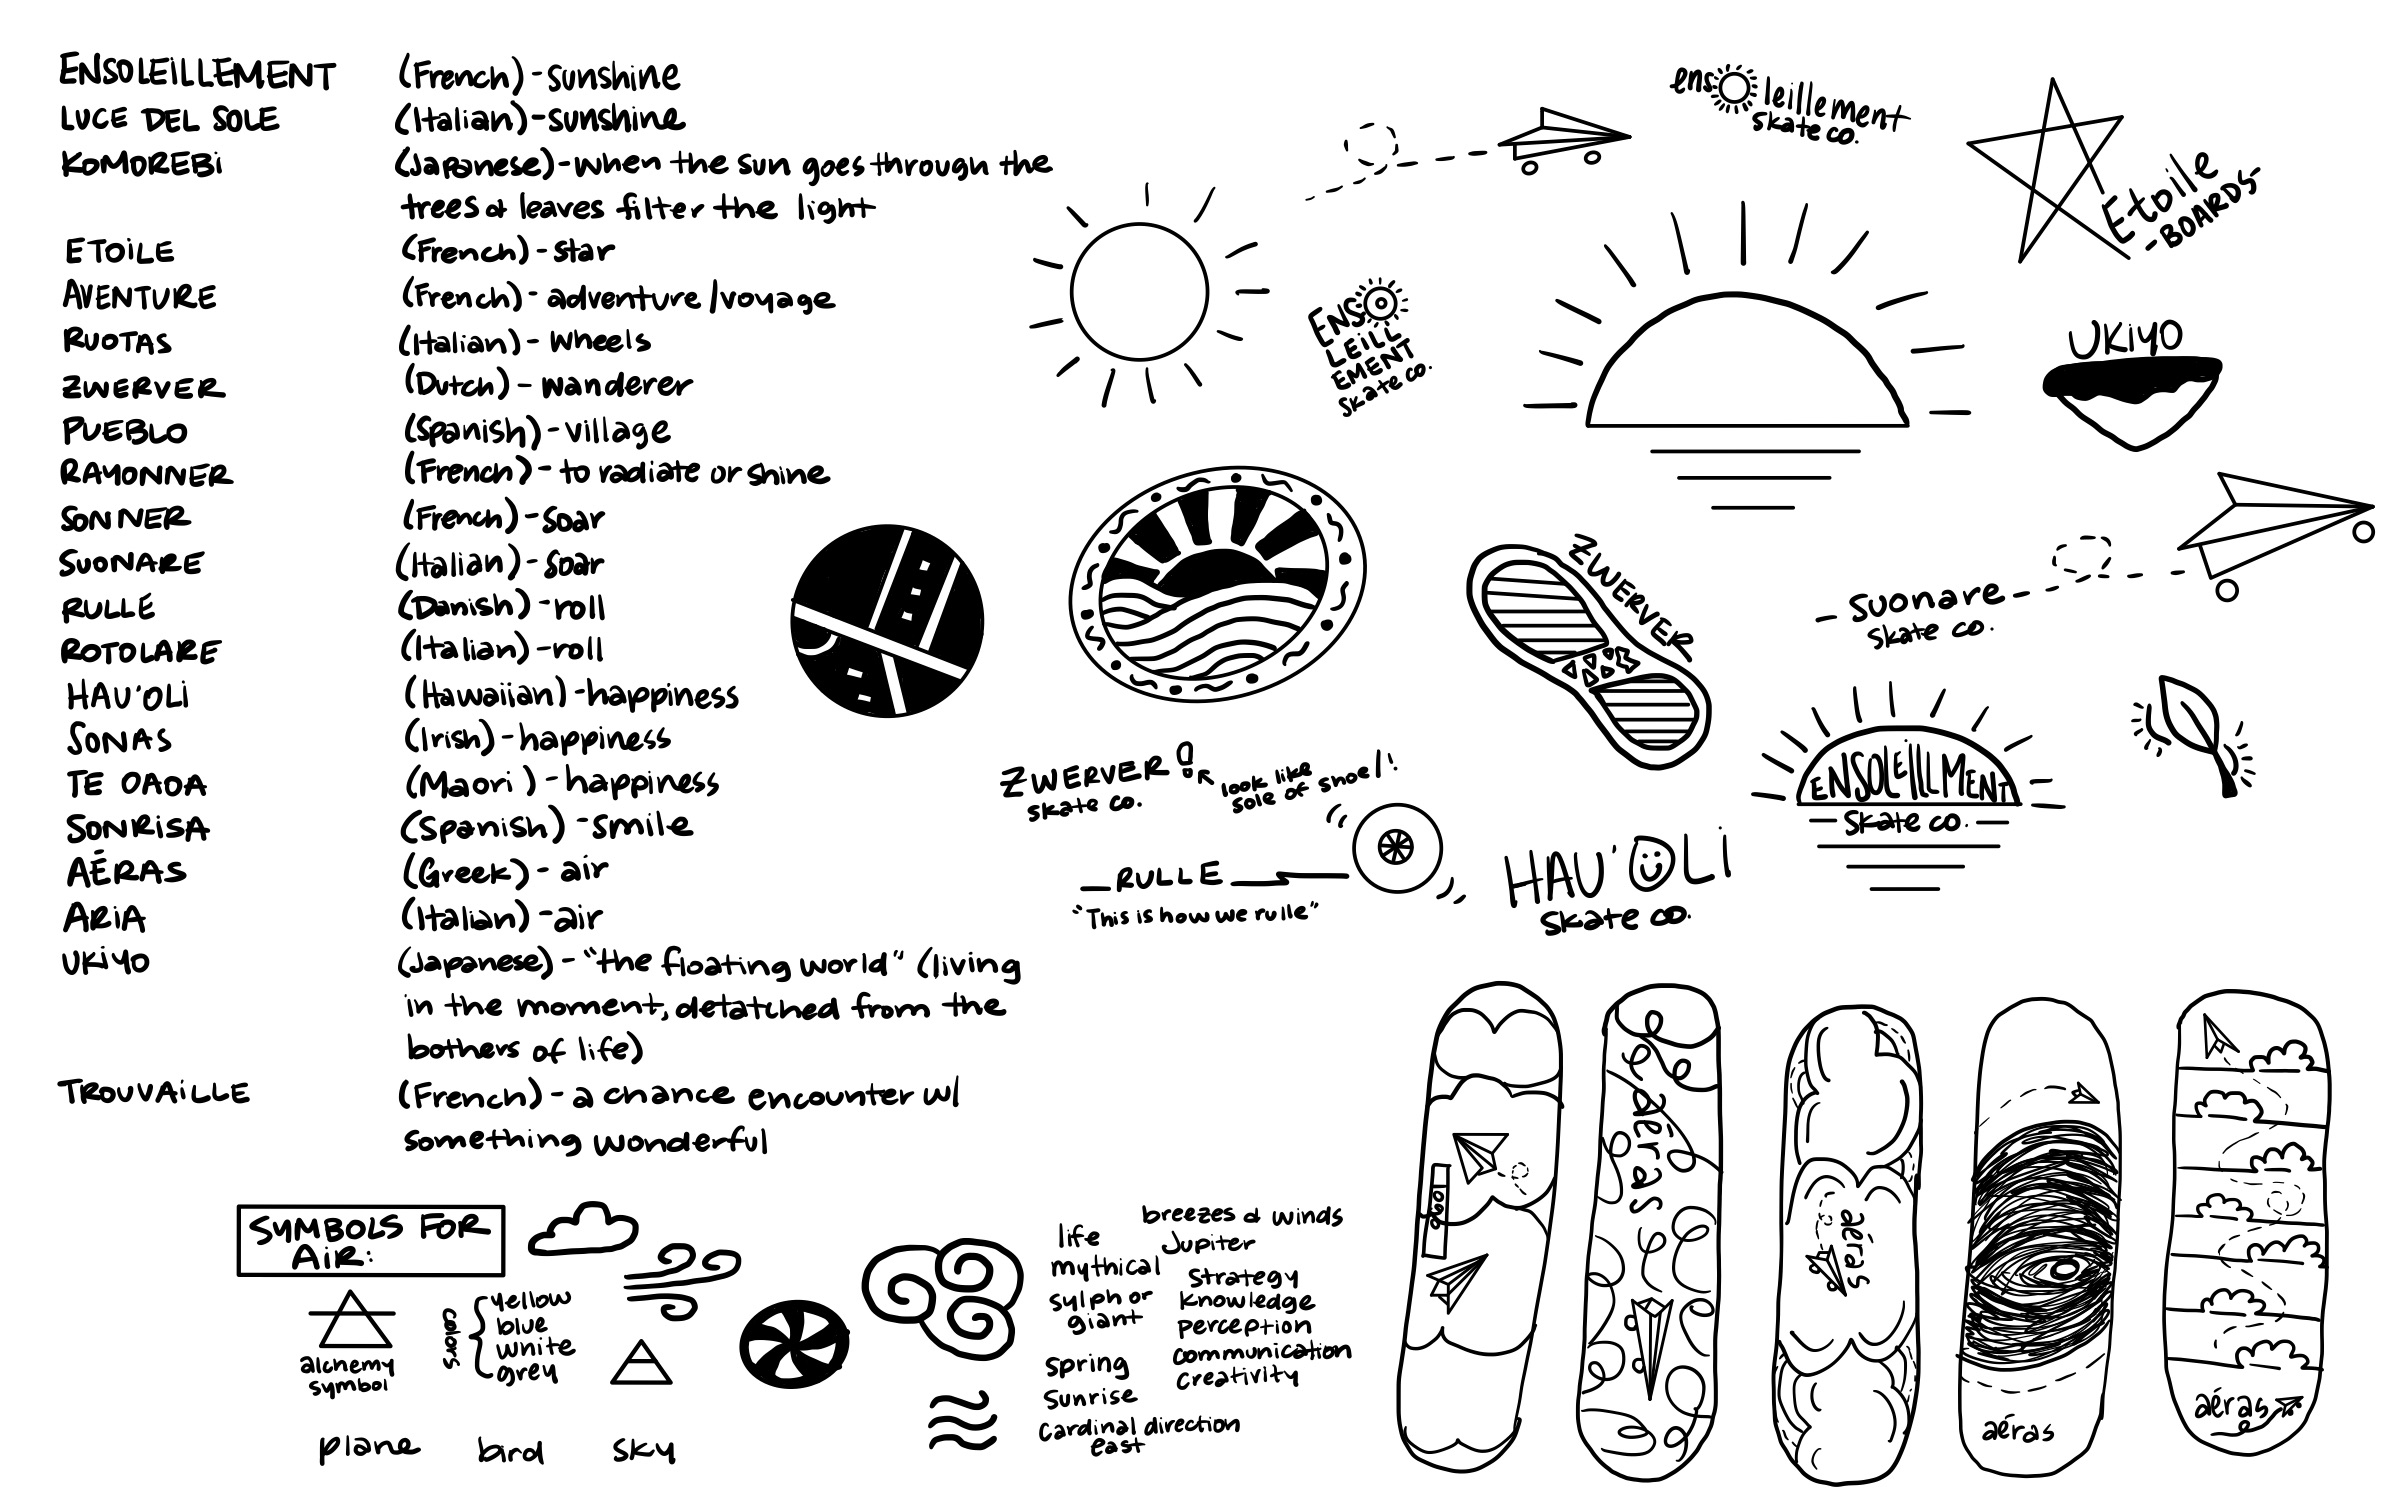 ENSOLEILLEMENT (French)-sunshine
LUCE DEL SOLE (Italian)-sunshine
KOMOREBi (Japanese)-when the sun goes through the
trees & leaves filter the light
ETOiLE (French)-star
AVENTURE (French)-adventure/voyage
RUOTAS (Italian)-wheels
ZWERVER (Dutch)-wanderer
PUEBLO (Spanish)-village
RAYONNER (French)-to radiate or shine
SONNER (French)-soar
SUONARE (Italian)-soar
RULLE (Danish)-roll
ROTOLARE (Italian)-roll
HAU'OLi (Hawaiian)-happiness
SONAS (Irish)-happiness
TE OAOA (Maori)-happiness
SONRiSA (Spanish)-smile
AÉRAS (Greek)-air
ARiA (Italian)-air
UKiYO (Japanese)-"the floating world" (living
in the moment, detatched from the
bothers of life)
TROUVAiLLE (French)-a chance encounter w/
something wonderful
ensoleillement
skate co.
Etoile
-BOARDS-
ENSO
LEiLL
EMENT
skate co.
UKiYO
ZWERVER
suonare
skate co.
ZWERVER
skate co.
look like
sole of shoe!!
ENSOLEILLMENT
skate co.
RULLE
"This is how we rulle"
HAU'OLi
skate co.
SYMBOLS FOR
AiR:
alchemy
symbol
colors
yellow
blue
white
grey
plane
bird
sky
life
mythical
sylph or
giant
spring
sunrise
cardinal direction
east
breezes & winds
Jupiter
strategy
knowledge
perception
communication
creativity
aéras
aéras
aéras
aéras